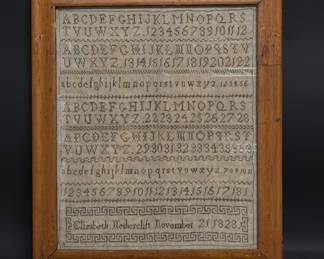 ABCDEFGHIJKLMNOPQRS
TVUWXYZ.123456789101112
ABCDEFGHIJKLMNOPQRSTV
UWXYZ.13141516171819202122
abcdefghijklmnopqrstvuwxyz.123456
ABCDEFGHIJKLMNOPQRS
TVUWXYZ.22232425262728
ABCDEFGHIJKLMNOPQRSTV
UWXYZ.293031323334353
abcdefghijklmnopqrstvuwxyz.
123456789101112131415161718
Elizabeth November 21 1828